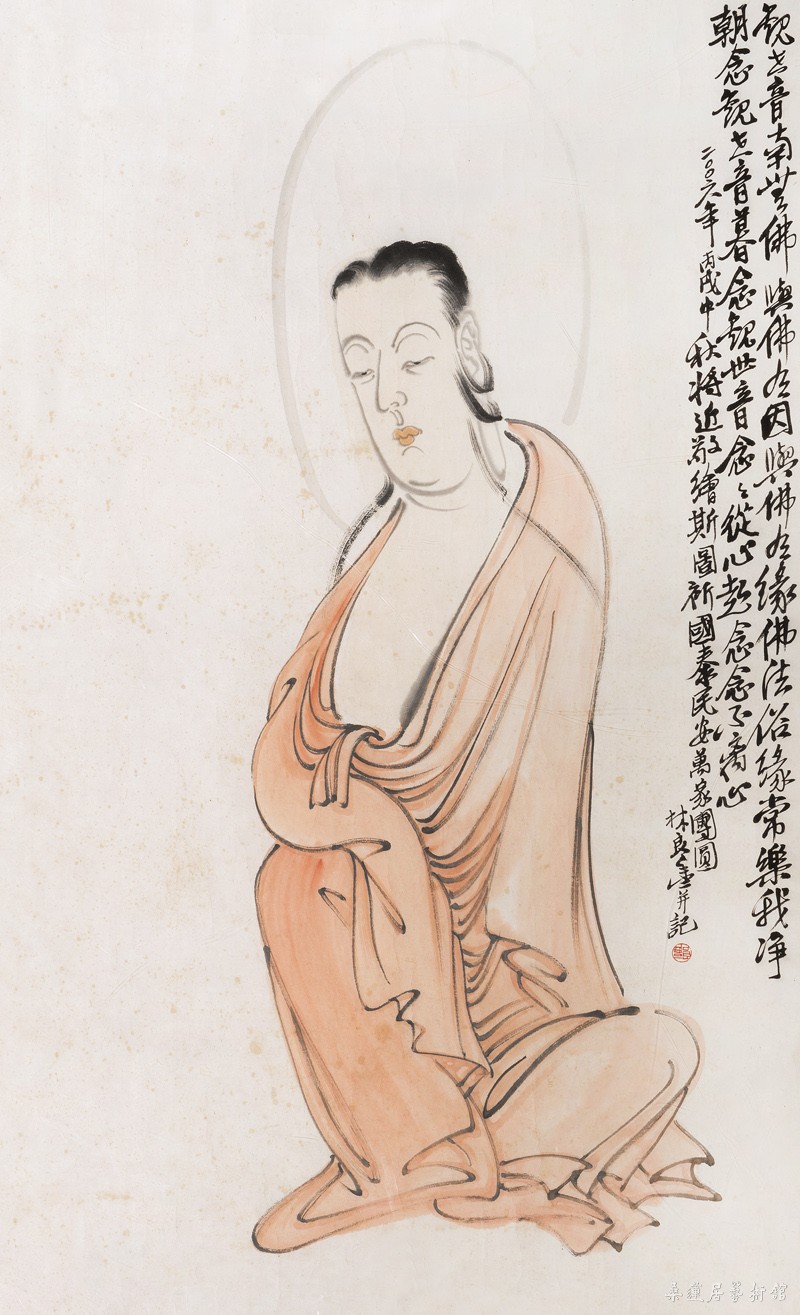 觀世音南無佛與佛有因與佛有緣佛法俗緣常樂我净
朝念觀世音暮念觀世音念〻從心起念念不離心
二〇〇六年丙戌中秋將近敬繪斯圖祈國泰民安萬家團圓
林良并記
桑蓮居藝術館